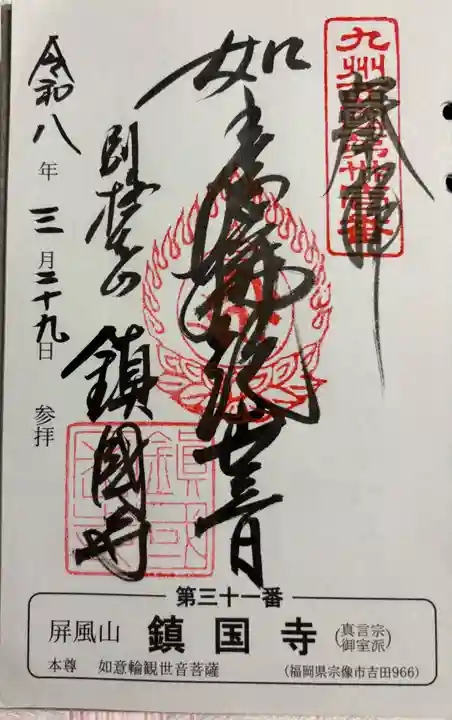 九州
奉拝
如意輪観世音
別格本山 鎮國寺
令和八年三月二十九日 参拝
第三十一番
屏風山 鎮国寺 (真言宗御室派)
本尊 如意輪観世音菩薩 (福岡県宗像市吉田966)